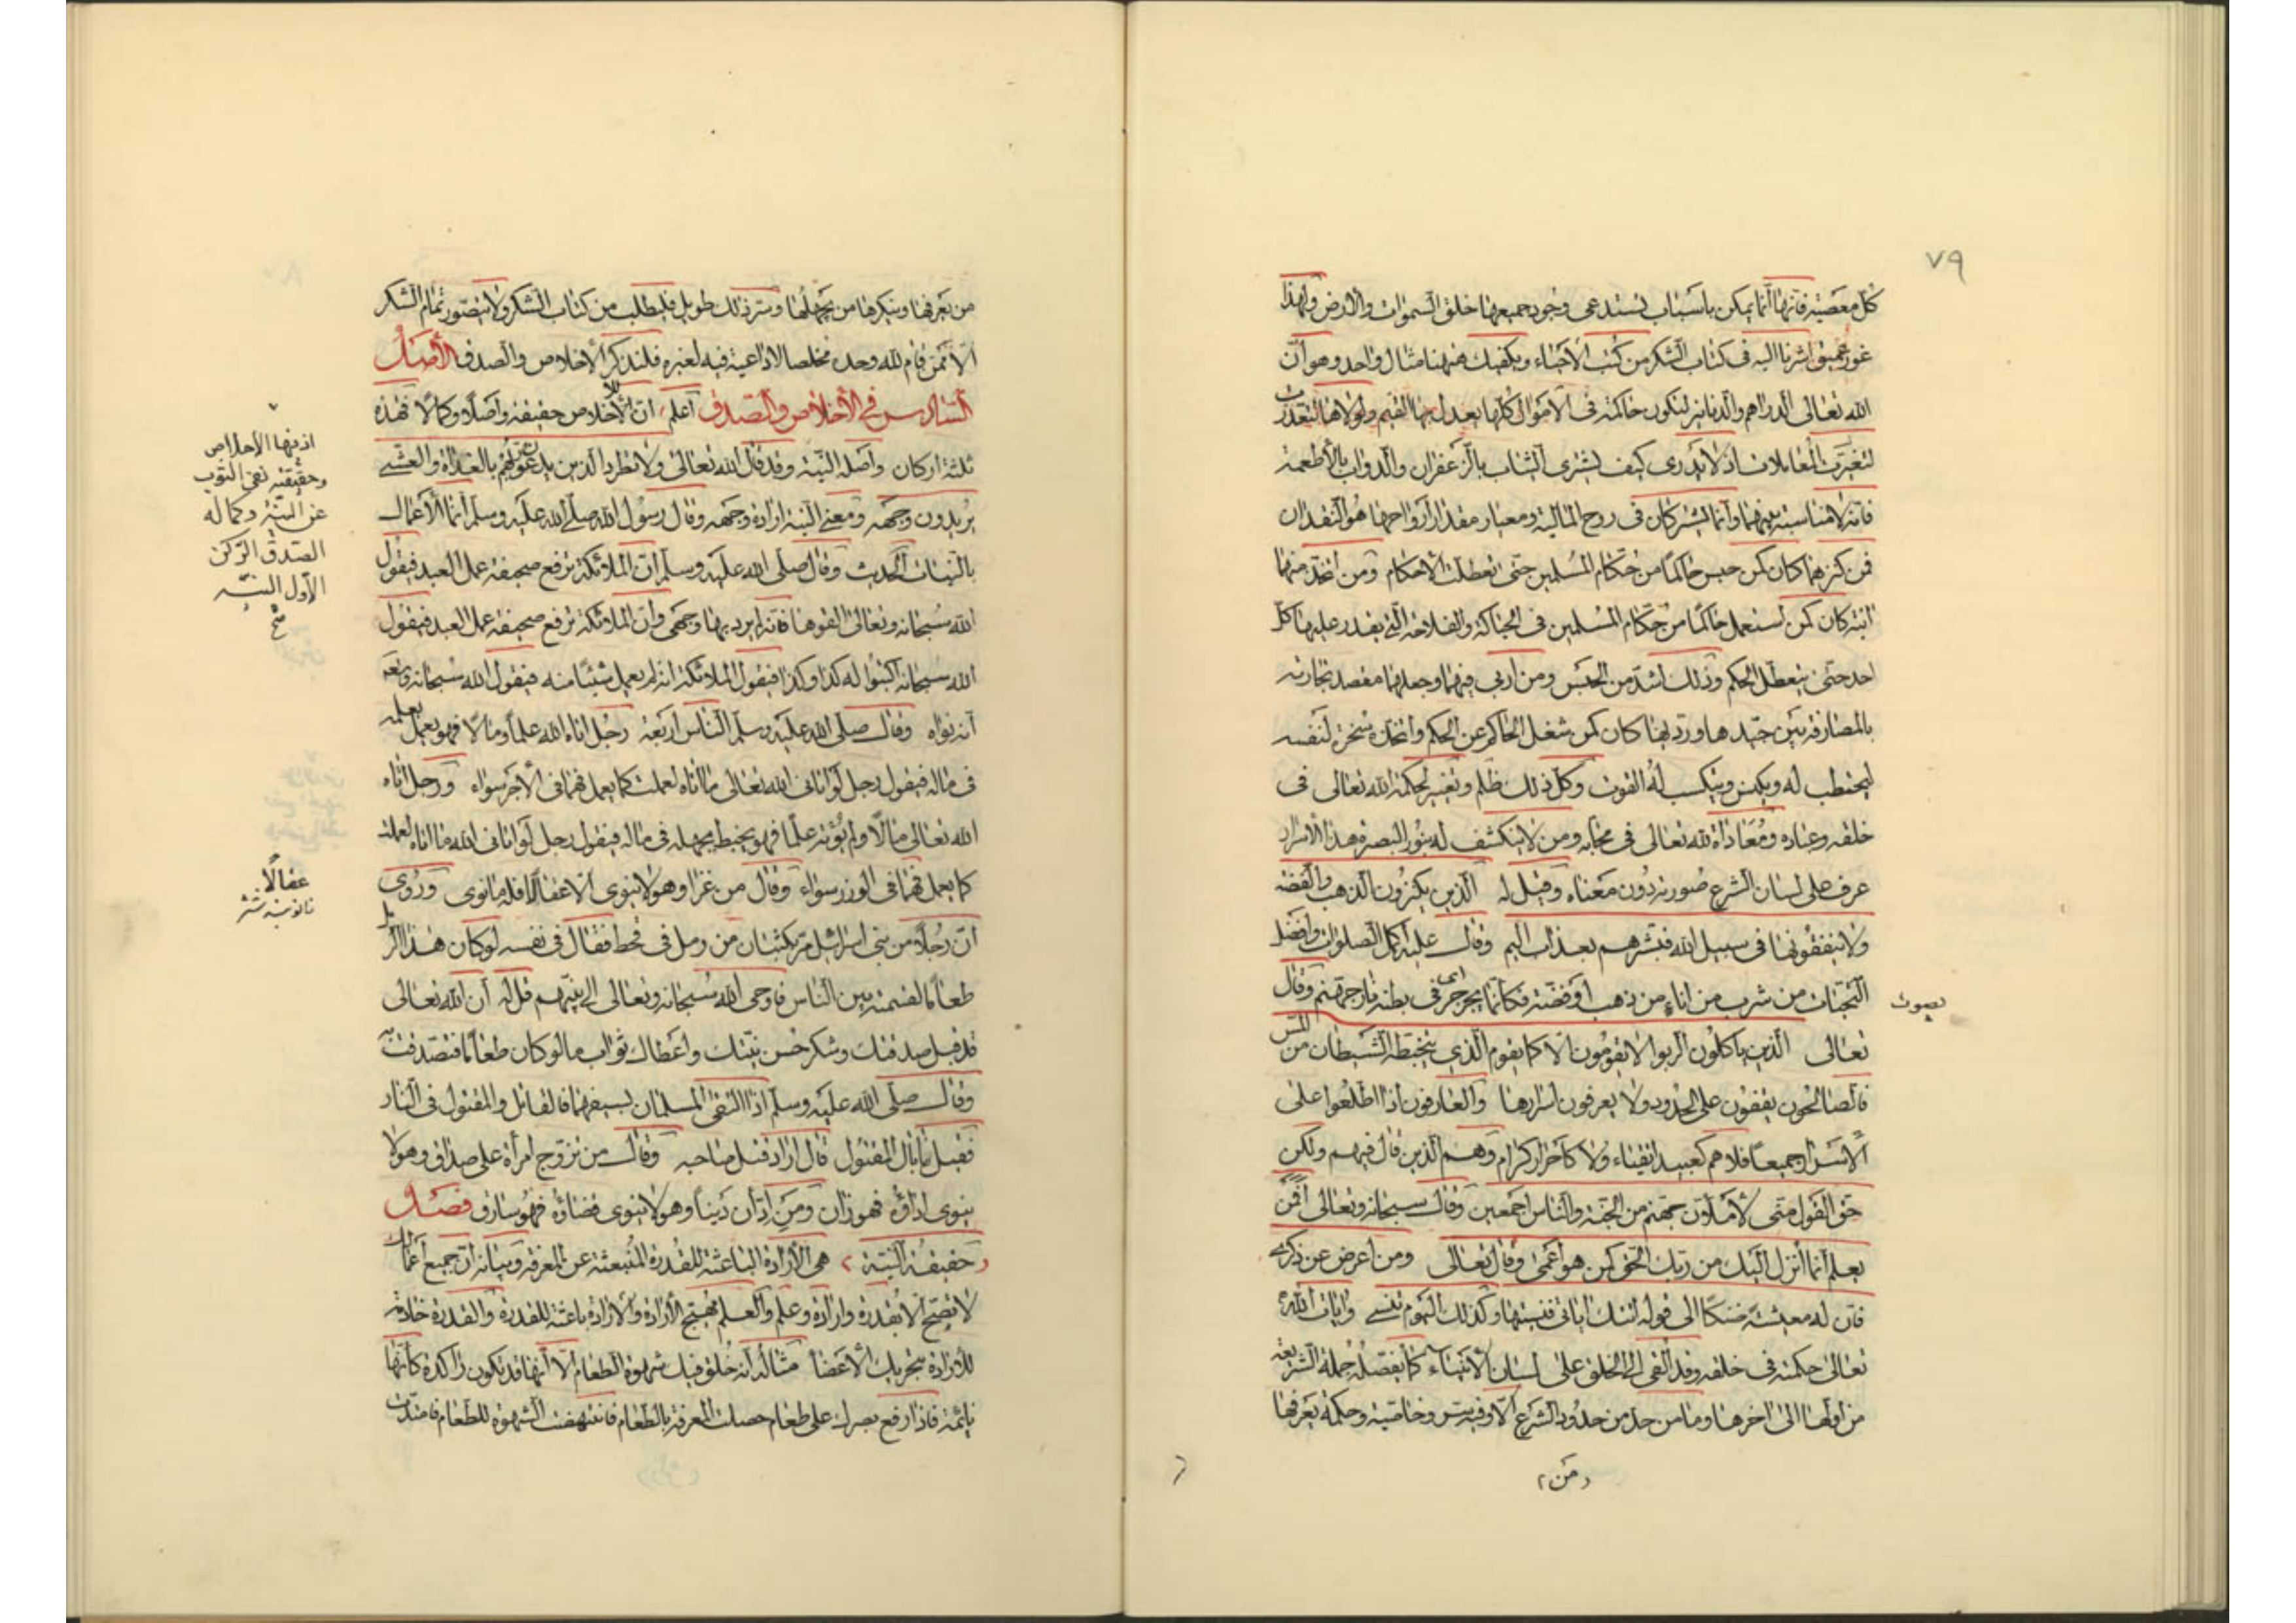 ٧٩
كل معصية فانها انما يمكن باسباب يستدعى وجود جميعها خلق السموات والارض ولهذا
غور عميق اشرنا اليه فى كتاب الشكر من كتب الاحياء ويكفيك ههنا مثال واحد وهو ان
الله تعالى الدراهم والدنانير لتكون حاكمة فى الاموال كلها يعدل بها القيم ولولاها لتعذرت
لتغيرت المعاملات اذ لا يدرى كيف يشترى الثياب بالزعفران والدواب بالاطعمة
فانه لا مناسبة بينهما وانما يشتركان فى روح المالية ومعيار مقدار ارواحها هو النقدان
فمن كنزهما كان كمن حبس حاكما من حكام المسلمين حتى تعطلت الاحكام ومن اتخذ منها
انية كان كمن استعمل حاكما من حكام المسلمين فى الحياكة والفلاحة التى يقدر عليها كل
احد حتى يتعطل الحكم وذلك اشد من الحبس ومن اربى فيها وجعلها مقصد تجارته
بالمصارفة بين جيدها ورديها كان كمن شغل الحاكم عن الحكم واتخذه سخرة لنفسه
ليحتطب له ويكنس ويكسب له القوت وكل ذلك ظلم وتغيير لحكمة الله تعالى فى
خلقه وعباده ومعاداة لله تعالى فى محابه ومن لا ينكشف له بنور البصيرة هذا الاسرار
عرف على لسان الشرع صورته دون معناه وقيل له الذين يكنزون الذهب والفضة
ولا ينفقونها فى سبيل الله فبشرهم بعذاب اليم وقال عليه اكمل الصلوات وافضل
التحيات من شرب من اناء من ذهب او فضة فكانما يجرجر اى فى بطنه نار جهنم وقال
يصوت
تعالى الذين ياكلون الربوا لا يقومون الا كما يقوم الذى يتخبطه الشيطان من المس
فالصالحون يقفون على الحدود ولا يعرفون اسرارها والعارفون اذا اطلعوا على
الاسرار جميعا فلا هم كعبيد اتقياء ولا كاحرار كرام وهم الذين قال فيهم ولكن
حق القول منى لاملان جهنم من الجنة والناس اجمعين وقال سبحانه وتعالى افمن
يعلم انما انزل اليك من ربك الحق كمن هو اعمى وقال تعالى ومن اعرض عن ذكرى
فان له معيشة ضنكا الى قوله اتتك اياتى فنسيتها وكذلك اليوم تنسى وايات الله
تعالى حكمته فى خلقه وقد القى الى الخلق على لسان الانبياء كما يفصله جملة الشريعة
من اولها الى اخرها وما من حد من حدود الشرع الا وفيه سر وخاصية وحكمة يعرفها
من
من يعرفها وينكرها من يجهلها وشرح ذلك طويل فليطلب من كتاب الشكر ولا يتصور تمام الشكر
الا ممن قام لله وحده مخلصا لا داعية فيه لغيره فلنذكر الاخلاص والصدق الاصل
السادس فى الاخلاص والصدق اعلم ان للاخلاص حقيقة واصلا وكمالا فهذه
ثلثة اركان واصله النية وقد قال الله تعالى ولا تطرد الذين يدعون ربهم بالغداة والعشى
يريدون وجهه ومعنى النية ارادة وجهه وقال رسول الله صلى الله عليه وسلم انما الاعمال
بالنيات الحديث وقال صلى الله عليه وسلم ان الملائكة ترفع صحيفة عمل العبد فيقول
الله سبحانه وتعالى القوها فانه لم يرد بها وجهى وان الملائكة ترفع صحيفة عمل العبد فيقول
الله سبحانه اكتبوا له كذا وكذا فيقول الملائكة انه لم يعمل شيئا منه فيقول الله سبحانه وتعالى
انه نواه وقال صلى الله عليه وسلم الناس اربعة رجل اتاه الله علما ومالا فهو يعمل بعلمه
فى ماله فيقول رجل لو اتانى الله تعالى ما اتاه لعملت كما يعمل فهما فى الاجر سواء ورجل اتاه
الله تعالى مالا ولم يؤته علما فهو يخبط بجهله فى ماله فيقول رجل لو اتانى الله ما اتاه لعملت
كما يعمل فهما فى الوزر سواء وقال من غزا وهو لا ينوى الا عقالا فله ما نوى وروى
ان رجلا من بنى اسرائيل مر بكثبان من رمل فى قحط فقال فى نفسه لو كان هذا الرمل
طعاما لقسمته بين الناس فاوحى الله سبحانه وتعالى الى نبيهم قل له ان الله تعالى
قد قبل صدقتك وشكر حسن نيتك واعطاك ثواب ما لو كان طعاما فتصدقت به
وقال صلى الله عليه وسلم اذا التقى المسلمان بسيفهما فالقاتل والمقتول فى النار
فقيل ما بال المقتول قال اراد قتل صاحبه وقال من تزوج امرأة على صداق وهو لا
ينوى اداؤه فهو زان ومن ادان دينا وهو لا ينوى قضاؤه فهو سارق فصل
حقيقة النية هى الارادة الباعثة للقدرة المنبعثة عن المعرفة وبيانه ان جميع اعمالك
لا تصح الا بقدرة وارادة وعلم والعلم يهيج الارادة والارادة باعثة للقدرة والقدرة خادمة
للارادة بتحريك الاعضا مثاله انه خلق فيك شهوة الطعام الا انها قد تكون راكدة كانها
نائمة فاذا رفع بصرك على طعام حصلت المعرفة بالطعام فانتهضت الشهوة للطعام فامتدت
الاخلاص
وحقيقته نفى الشوب
عن النية وكماله
الصدق الركن
الاول النية
صح
عقالا